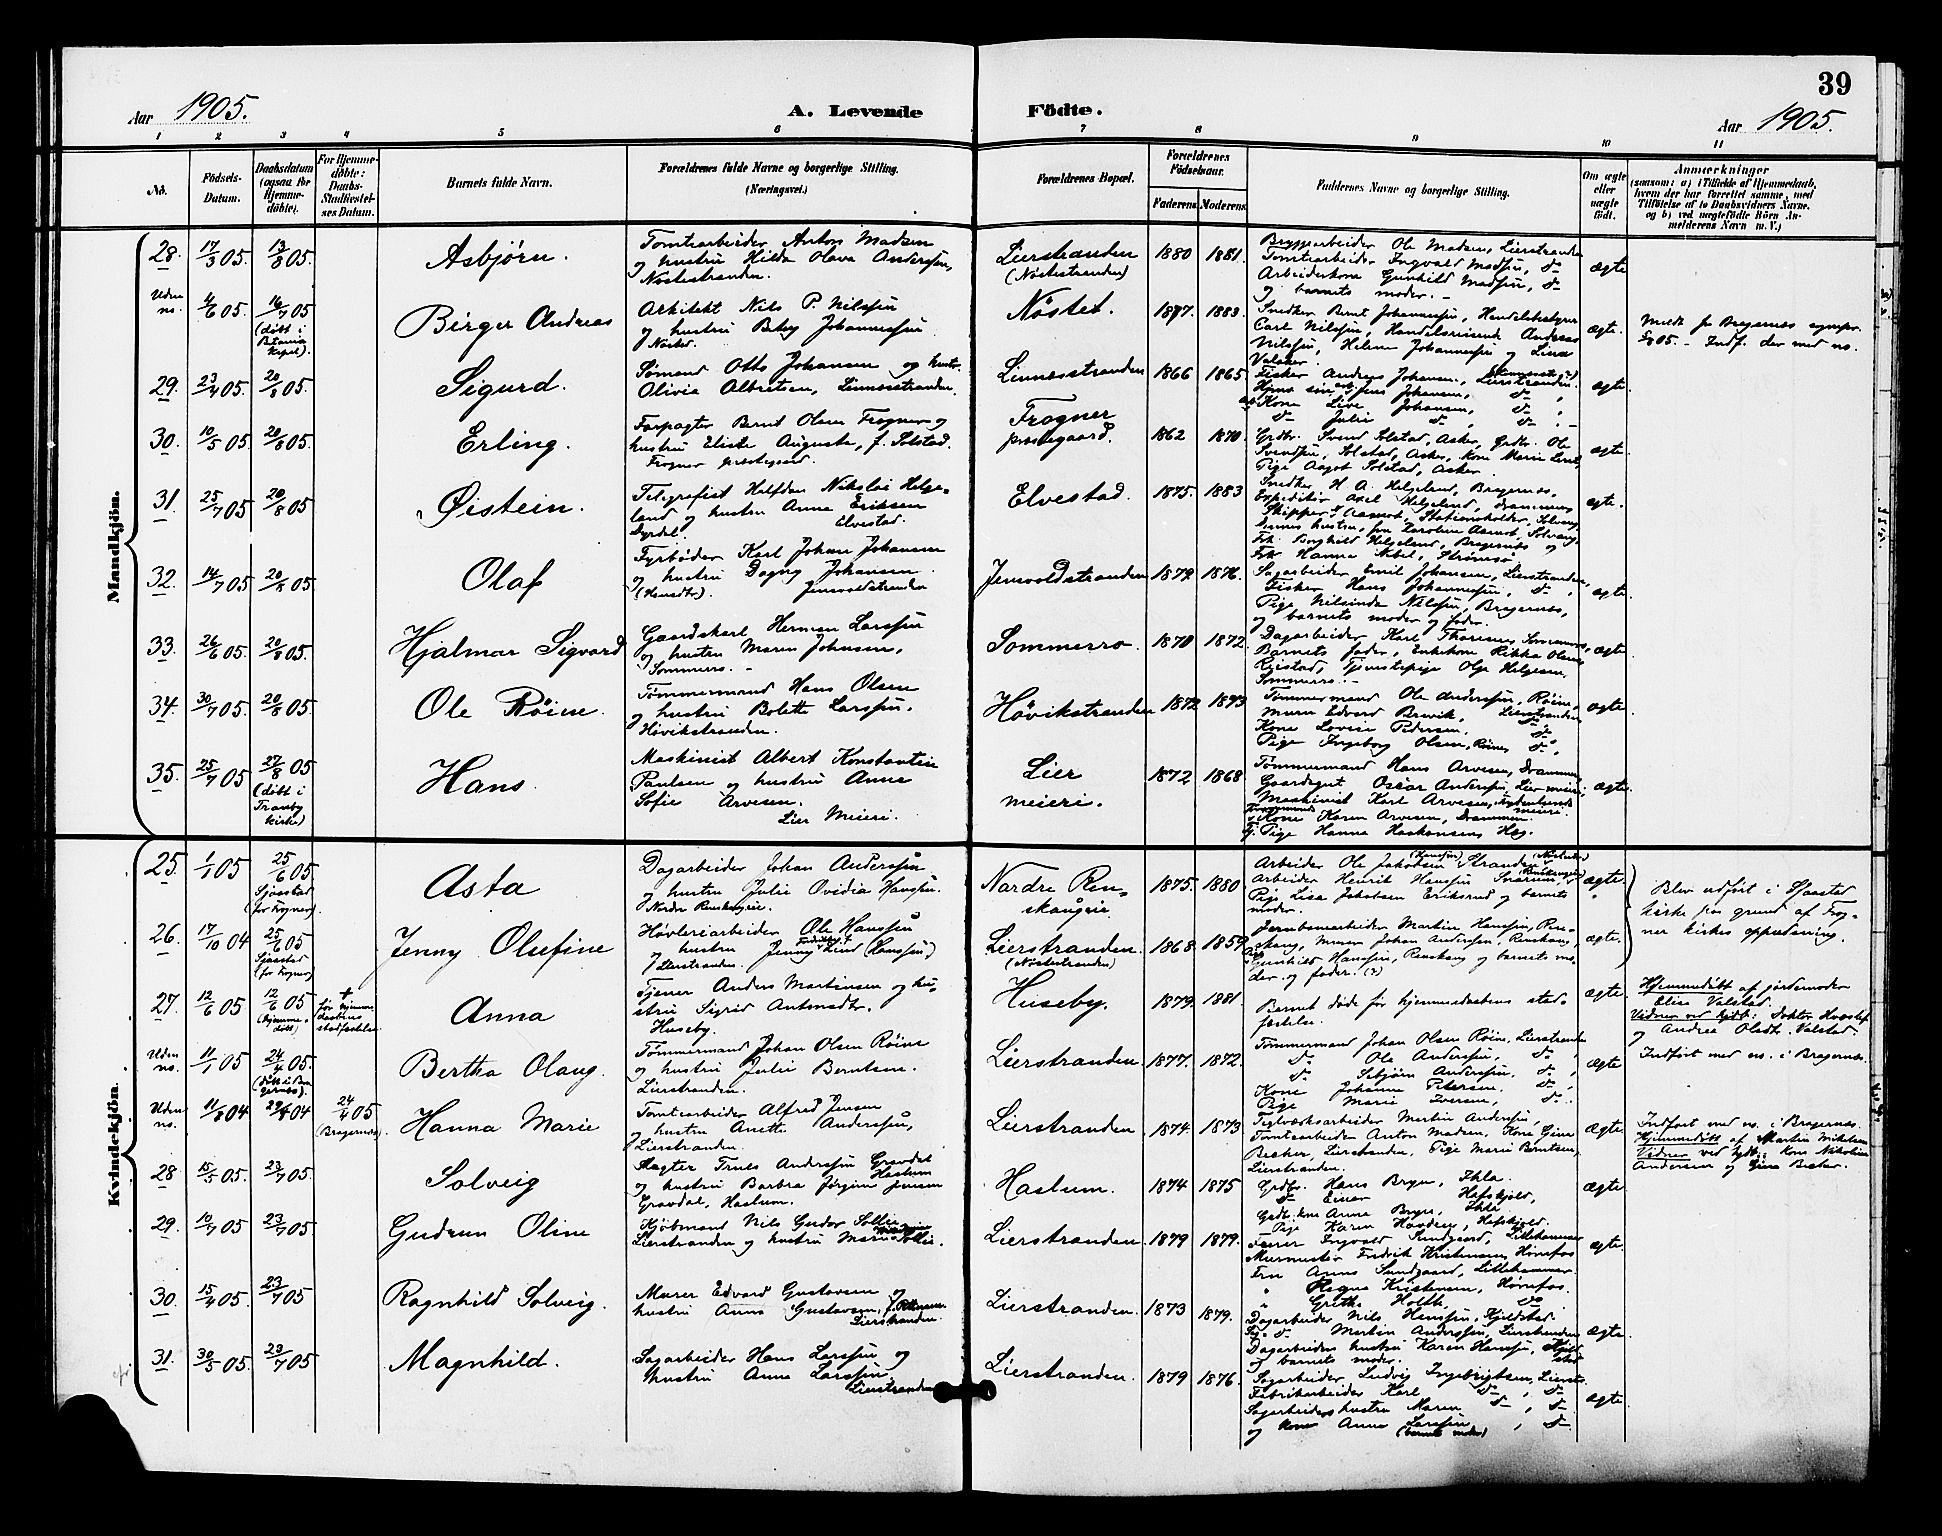 39
Aar 1905. A. Levende Födte. Aar 1905.
1 2 3 4 5 6 7 8 9 10 11
No. Födsels-Datum. Daabsdatum (ogsaa for Hjemme-döbte). For Hjemme-döbte: Daabs-Stadfæstel-ses Datum. Barnets fulde Navn. Forældrenes fulde Navne og borgerlige Stilling. (Næringsvei.) Forældrenes Bopæl. Forældrenes Födselsaar. Faderens Moderens Faddernes Navne og borgerlige Stilling. Om ægte eller uægte födt. Anmærkninger (saasom: a) i Tilfælde af Hjemmedaab, hvem der har forrettet samme, med Tilföielse af to Daabsvidners Navne, og b) ved uægtefödte Börn An-melderens Navn m. V.)
Mandkjön.
28. 17/3 05. 13/8 05. Asbjörn. Tomtearbeider Anton Madsen
og hustru Hilda Olava Anderssen,
Nöstestranden.
Lierstranden (Nöstestranden) 1880 1881.
Bryggearbeider Ole Madsen, Lierstranden
Tomtearbeider Ingvald Madsen, do
Arbeiderkone Gunhild Madsen, do
og barnets moder. ægte.
Uden no. 4/6 05. 16/7 05 (döbt i Betania kapel). Birger Andreas Arkitekt Nils P. Nilssen
og hustru Betsy Johannessen
Nöstet.
Nöstet. 1877. 1883.
Snedker Bernt Johannessen, Handelsbestyrer
Carl Nilssen, Handelsreisende Andreas
Nilssen, Helene Johannessen og Lina
ægte. Meldt fra Bragernes
Indf. der med no.
29. 23/4 05. 20/8 05. Sigurd. Sömand Otto Johansen og hustr.
Olivia Albretsen, Linnesstranden.
Linnesstranden 1866 1865
Fisker Andreas Johansen, Lierstranden
Jens Johansen, do
Kone Live Johansen, do
do Julie do, do ægte.
30. 10/5 05. 20/8 05. Erling. Forpagter Bernt Olsen Frogner og
hustru Elise Augusta, f. Solstad.
Frogner prestegaard.
Frogner prestegaard. 1862 1870.
Grdbr. Svend Solstad, Asker, Grdbr. Ole
Svendsen, Solstad, Asker, Kone Marie
Pige Aagot Solstad, Asker. ægte.
31. 25/7 05 20/8 05 Øistein. Telegrafist Halfdan Nikolai Helge-
land og hustru Anna Eriksen
Dyrdal. Elvestad.
Elvestad. 1875. 1883
Snedker H. A. Helgeland, Bragernes,
Expeditör Axel Helgeland, Drammens
Skipper Stationsholder, Solvang
hustru, fru Karoline Solvang
Frk. Borghild Helgeland, Bragernes og
Frk. Hanna Nebel, Strömsö ægte.
32. 14/7 05 20/8 05. Olaf Fyrböder Karl Johan Johansen
og hustru Dagny Johansen
(Hansdtr). Jensvoldstranden
Jensvoldstranden 1879. 1876.
Sagarbeider Emil Johansen, Lierstranden,
Fisker Hans Johannessen, do
Pige Nilsine Nilssen, Bragernes,
og barnets moder og fader. ægte.
33. 26/6 05. 20/8 05. Hjalmar Sigvard Gaardskarl Herman Larssen
og hustru Maren Johnsen,
Sommerro.
Sommerro. 1870 1872.
Dagarbeider Karl Thoresen, Sommerro,
Barnets fader, Enkekone Rikka Olsen
Reistad, Tjenestepige Olga Helgesen,
Sommerro. ægte.
34. 30/7 05. 20/8 05. Ole Röine. Tömmermand Hans Olsen
og hustru Bolette Larssen,
Hövikstranden.
Hövikstranden 1872 1873
Tömmermand Ole Anderssen, Röine,
Murer Edvard Brevik, Lierstranden
Kone Lovise Pedersen, do
Pige Ingeborg Olsen, Röine, do, ægte.
35. 25/7 05 27/8 05 (döbt i Tranby kirke) Hans. Maskinist Albert Konstantin
Paulsen og hustru Anna
Sofie Arvesen.
Lier Meieri.
Lier meieri. 1872 1868
Tömmermand Hans Arvesen, Drammen,
Gaardsgut Oscar Anderssen, Lier meieri,
Maskinist Karl Arvesen, meieri
Kone Karen Arvesen, Drammen.
Pige Hanna Haakonsen, Heg. ægte.
Kvindekjön.
25. 1/1 05 25/6 05. Sjaastad (for Frogner). Asta Dagarbeider Johan Anderssen
og hustru Julie Ovidia Hanssen.
Nordre Renskougeie.
Nordre Ren-skougeie 1875. 1880
Arbeider Ole Jakobsen Stranden
Arbeider Henrik Hanssen
Pige Lisa Jakobsen Eriksrud og barnets
moder. ægte.
Blev udfört i Sjaastad
kirke paa grund af Frog-
ner kirkes oppudsning.
26. 17/10 04 25/6 05 Sjaastad (for Frogner) Jenny Olufine Høvleriarbeider Ole Hanssen
og hustru Jenny Lind (Hanssen)
Lierstranden.
Lierstranden. (Nöstestranden) 1868. 1859
Jernbanearbeider Martin Hanssen, Ren-
skoug, Murer Johan Anderssen, Renskoug,
Gunhild Hanssen, Renskoug og barnets mo-
der og fader. ægte.
27. 12/6 05 12/6 05 (hjemme-döbt) + før hjemme-daabens stadfæstelse. Anna Tjener Anders Martinsen og hu-
stru Sigrid Antonsdtr.
Huseby.
Huseby. 1879 1881.
Barnet døde før hjemmedaabens stad-
fæstelse. ægte.
Hjemmedöbt af jordemoder
Elise Valstad.
Vidner ved hjdb: Doktor
og Andrea Olsdt. Valstad.
Uden no. 11/1 05. 24/4 05. (döbt i Bra-gernes) Bertha Olaug. Tömmermand Johan Olsen Röine
og hustru Julie Berntsen.
Lierstranden.
Lierstranden. 1877. 1872.
Tömmermand Johan Olsen Röine, Lierstranden
do Ole Anderssen, do
do Sebjörn Anderssen, do
Kone Johanne Petersen, do
Pige Marie Iversen, do. ægte
Indfört med no. i Bragernes.
Uden no. 11/8 04 04 24/4 05 (Bragernes). Hanna Marie Tomtearbeider Alfred Jensen
og hustru Anette Anderssen,
Lierstranden.
Lierstranden. 1874. 1873
Teglværksarbeider Martin Anderssen,
Tomtearbeider Anton Madsen, Kone Gina
Bræker, Lierstranden, Pige Marie Berntsen,
Lierstranden. ægte.
Indfört med no. i Bragernes.
Hjemmedöbt af Martin Mikelsen
Vidner ved hjdb: Kone Nikoline
Andersen og Gina Bræker.
28 15/5 05. 23/7 05. Solveig Slagter Truls Anderssen Gravdal
Haslum
og hustru Barbra Jörgine Jensen
Gravdal, Haslum.
Haslum. 1874 1875
Grdbr. Hans Bryn, Ihla.
do Einar Hafskjold,
Grdbr. kone Anna Bryn, Ihla
Pige Karen Havdsen, Hafskjold. ægte.
29. 10/7 05. 23/7 05. Gudrun Oline Kjöbmand Nils Gudor Sollie
Lierstranden og hustru Marie Sollie.
Lierstranden. 1879 1879.
Farver Ingvald Sundgaard, Lillehammer
Murmester Fredrik Kristensen, Hönefos
Fru Anna Sundgaard, Lillehammer.
" Magna Kristensen, Hönefos.
" Grethe Holth, do ægte.
30. 15/4 05. 23/7 05 Ragnhild Solveig. Murer Edvard Gustavsen og
hustru Anna Gustavsen, f. Pettersen.
Lierstranden.
Lierstranden. 1873 1879.
Dagarbeider Nils Hanssen, Kjeldstad.
do Martin Anderssen, Lierstranden
Dagarbeiders hustru Karen Hanssen, Kjeld-
og barnets moder. stad ægte.
31. 30/5 05. 23/7 05 Magnhild. Sagarbeider Hans Larssen og
hustru Anna Larssen,
Lierstranden
Lierstranden. 1879 1876.
Sagarbeider Ludvig Ingebrigtsen, Lierstr.
Fabrikarbeider Karl do, do
Sagarbeiders hustru Maren do, do
og kone Anna Larssen, do
(barnets moder) ægte.